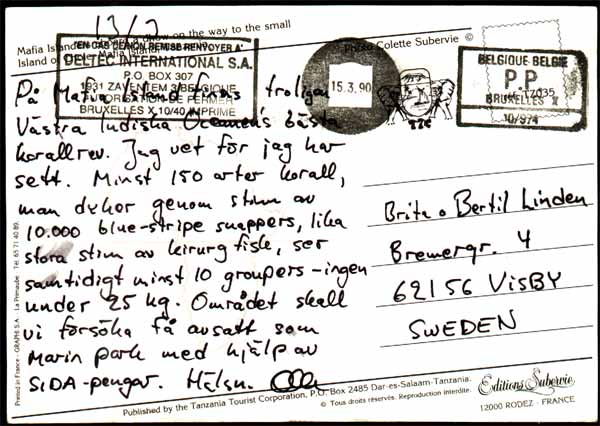 13/2
Mafia Island on the way to the small
Island of Mafia Island.
Photo Colette Subervie ©
"EN CAS DE NON REMISE RENVOYER A"
DELTEC INTERNATIONAL S.A.
P.O. BOX 307
1931 ZAVENTEM 3/BELGIQUE
DE FERMER
BRUXELLES X 10/40 IMPRIME
15.3.90
BELGIQUE-BELGIE
P P
T7035
BRUXELLES X
10/974
På Mafia Island finns troligen
Västra Indiska Oceanens bästa
korallrev. Jag vet för jag har
sett. Minst 150 arter korall,
man dyker genom stim av
10.000 blue-stripe snappers, lika
stora stim av kirurgfisk, ser
samtidigt minst 10 groupers – ingen
under 25 kg. Området skall
vi försöka få avsatt som
Marin park med hjälp av
SIDA-pengar. Hälsn. Olle
Brita o Bertil Linden
Bremergr. 4
62156 VISBY
SWEDEN
Printed in France - GRAPHI S.A. - La Primaube - Tél. 65 71 40 89.
Published by the Tanzania Tourist Corporation, P.O. Box 2485 Dar-es-Salaam-Tanzania.
© Tous droits réservés. Reproduction interdite.
Editions Subervie
12000 RODEZ - FRANCE